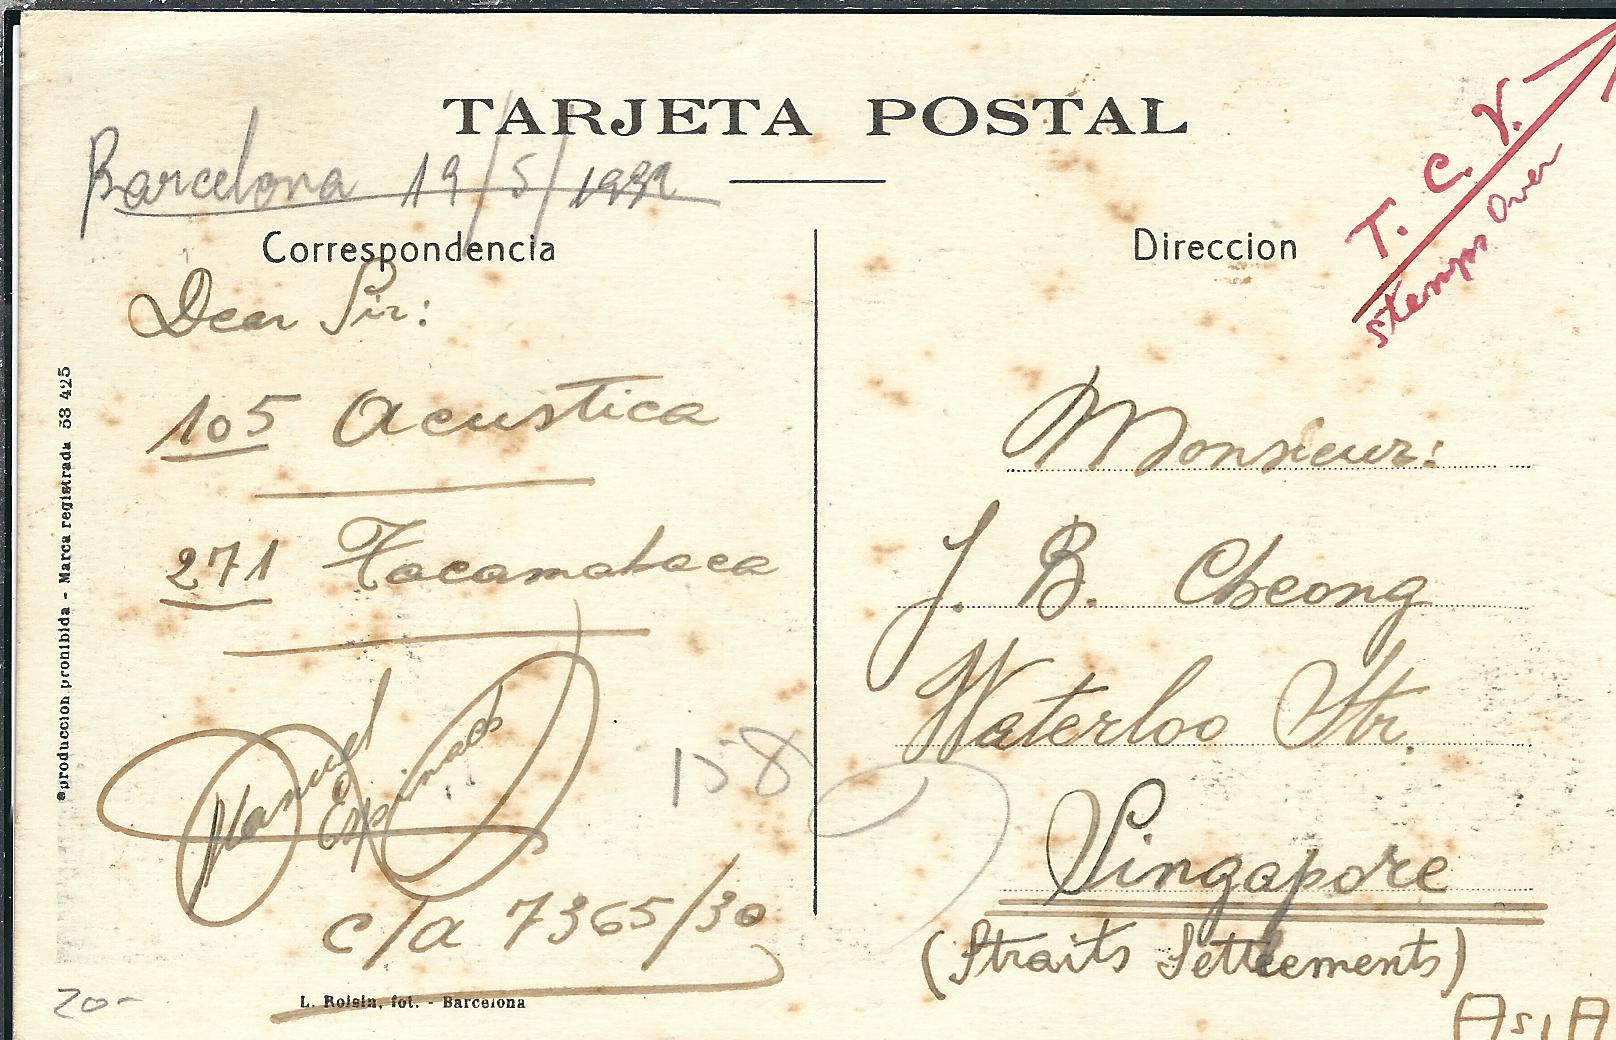 TARJETA POSTAL
Barcelona 19/5/1932
Correspondencia
Dear Sir:
105 Acustica
271 Tacamahaca
Manuel
Espinach
c/a 7365/30
158
20-
L. Roisin, fot. - Barcelona
producción prohibida - Marca registrada 53 425
Direccion
T. C. V.
stamps Over
Monsieur:
J. B. Cheong
Waterloo Str.
Singapore
(Straits Settlements)
ASIA